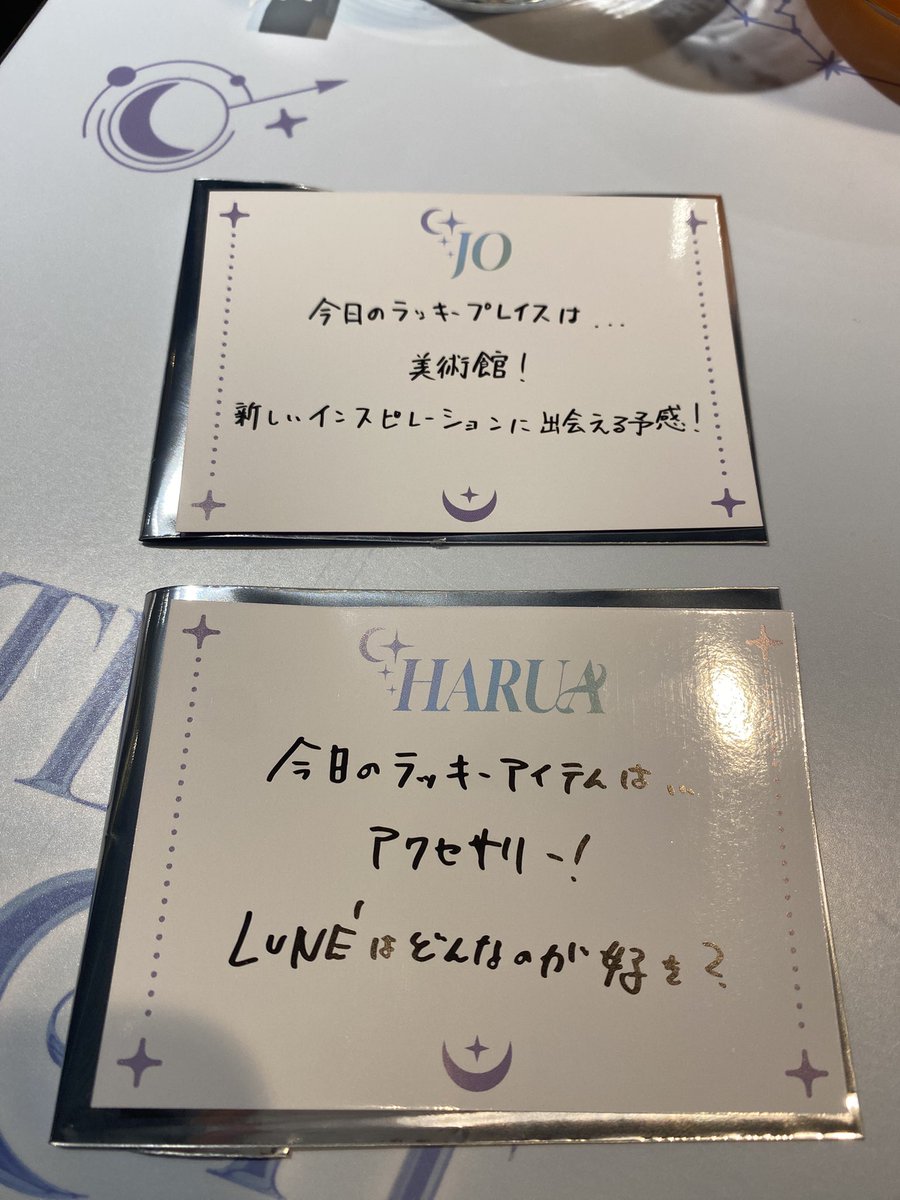 JO
今日のラッキープレイスは...
美術館!
新しいインスピレーションに出会える予感!
HARUA
今日のラッキーアイテムは...
アクセサリー!
LUNÉはどんなのが好き?